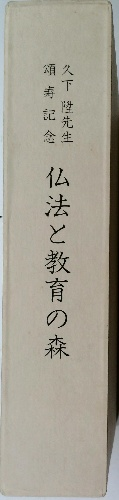 久下陞先生
頌寿記念
仏法と教育の森